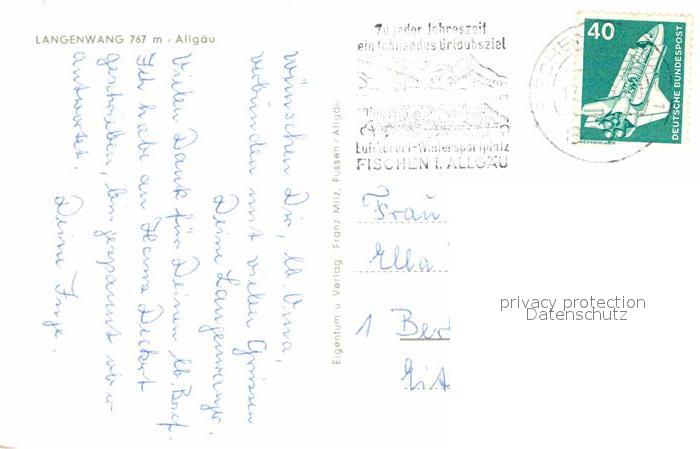 LANGENWANG 767 m / Allgäu
Wünschen Dir, lb. Oma,
verbunden mit vielen Grüssen
Deine Langenwanger.
Vielen Dank für Deinen lb. Brief.
Ich habe an Heinz Deckert
geschrieben, bin gespannt ob er
antwortet.
Deine Inge.
Eigentum u Verlag Franz Milz, Füssen / Allgäu
Zu jeder Jahreszeit
ein lohnendes Urlaubsziel
Luftkurort-Wintersportplatz
FISCHEN I. ALLGÄU
40
DEUTSCHE BUNDESPOST
Frau
Ella
1 Ber
privacy protection
Datenschutz